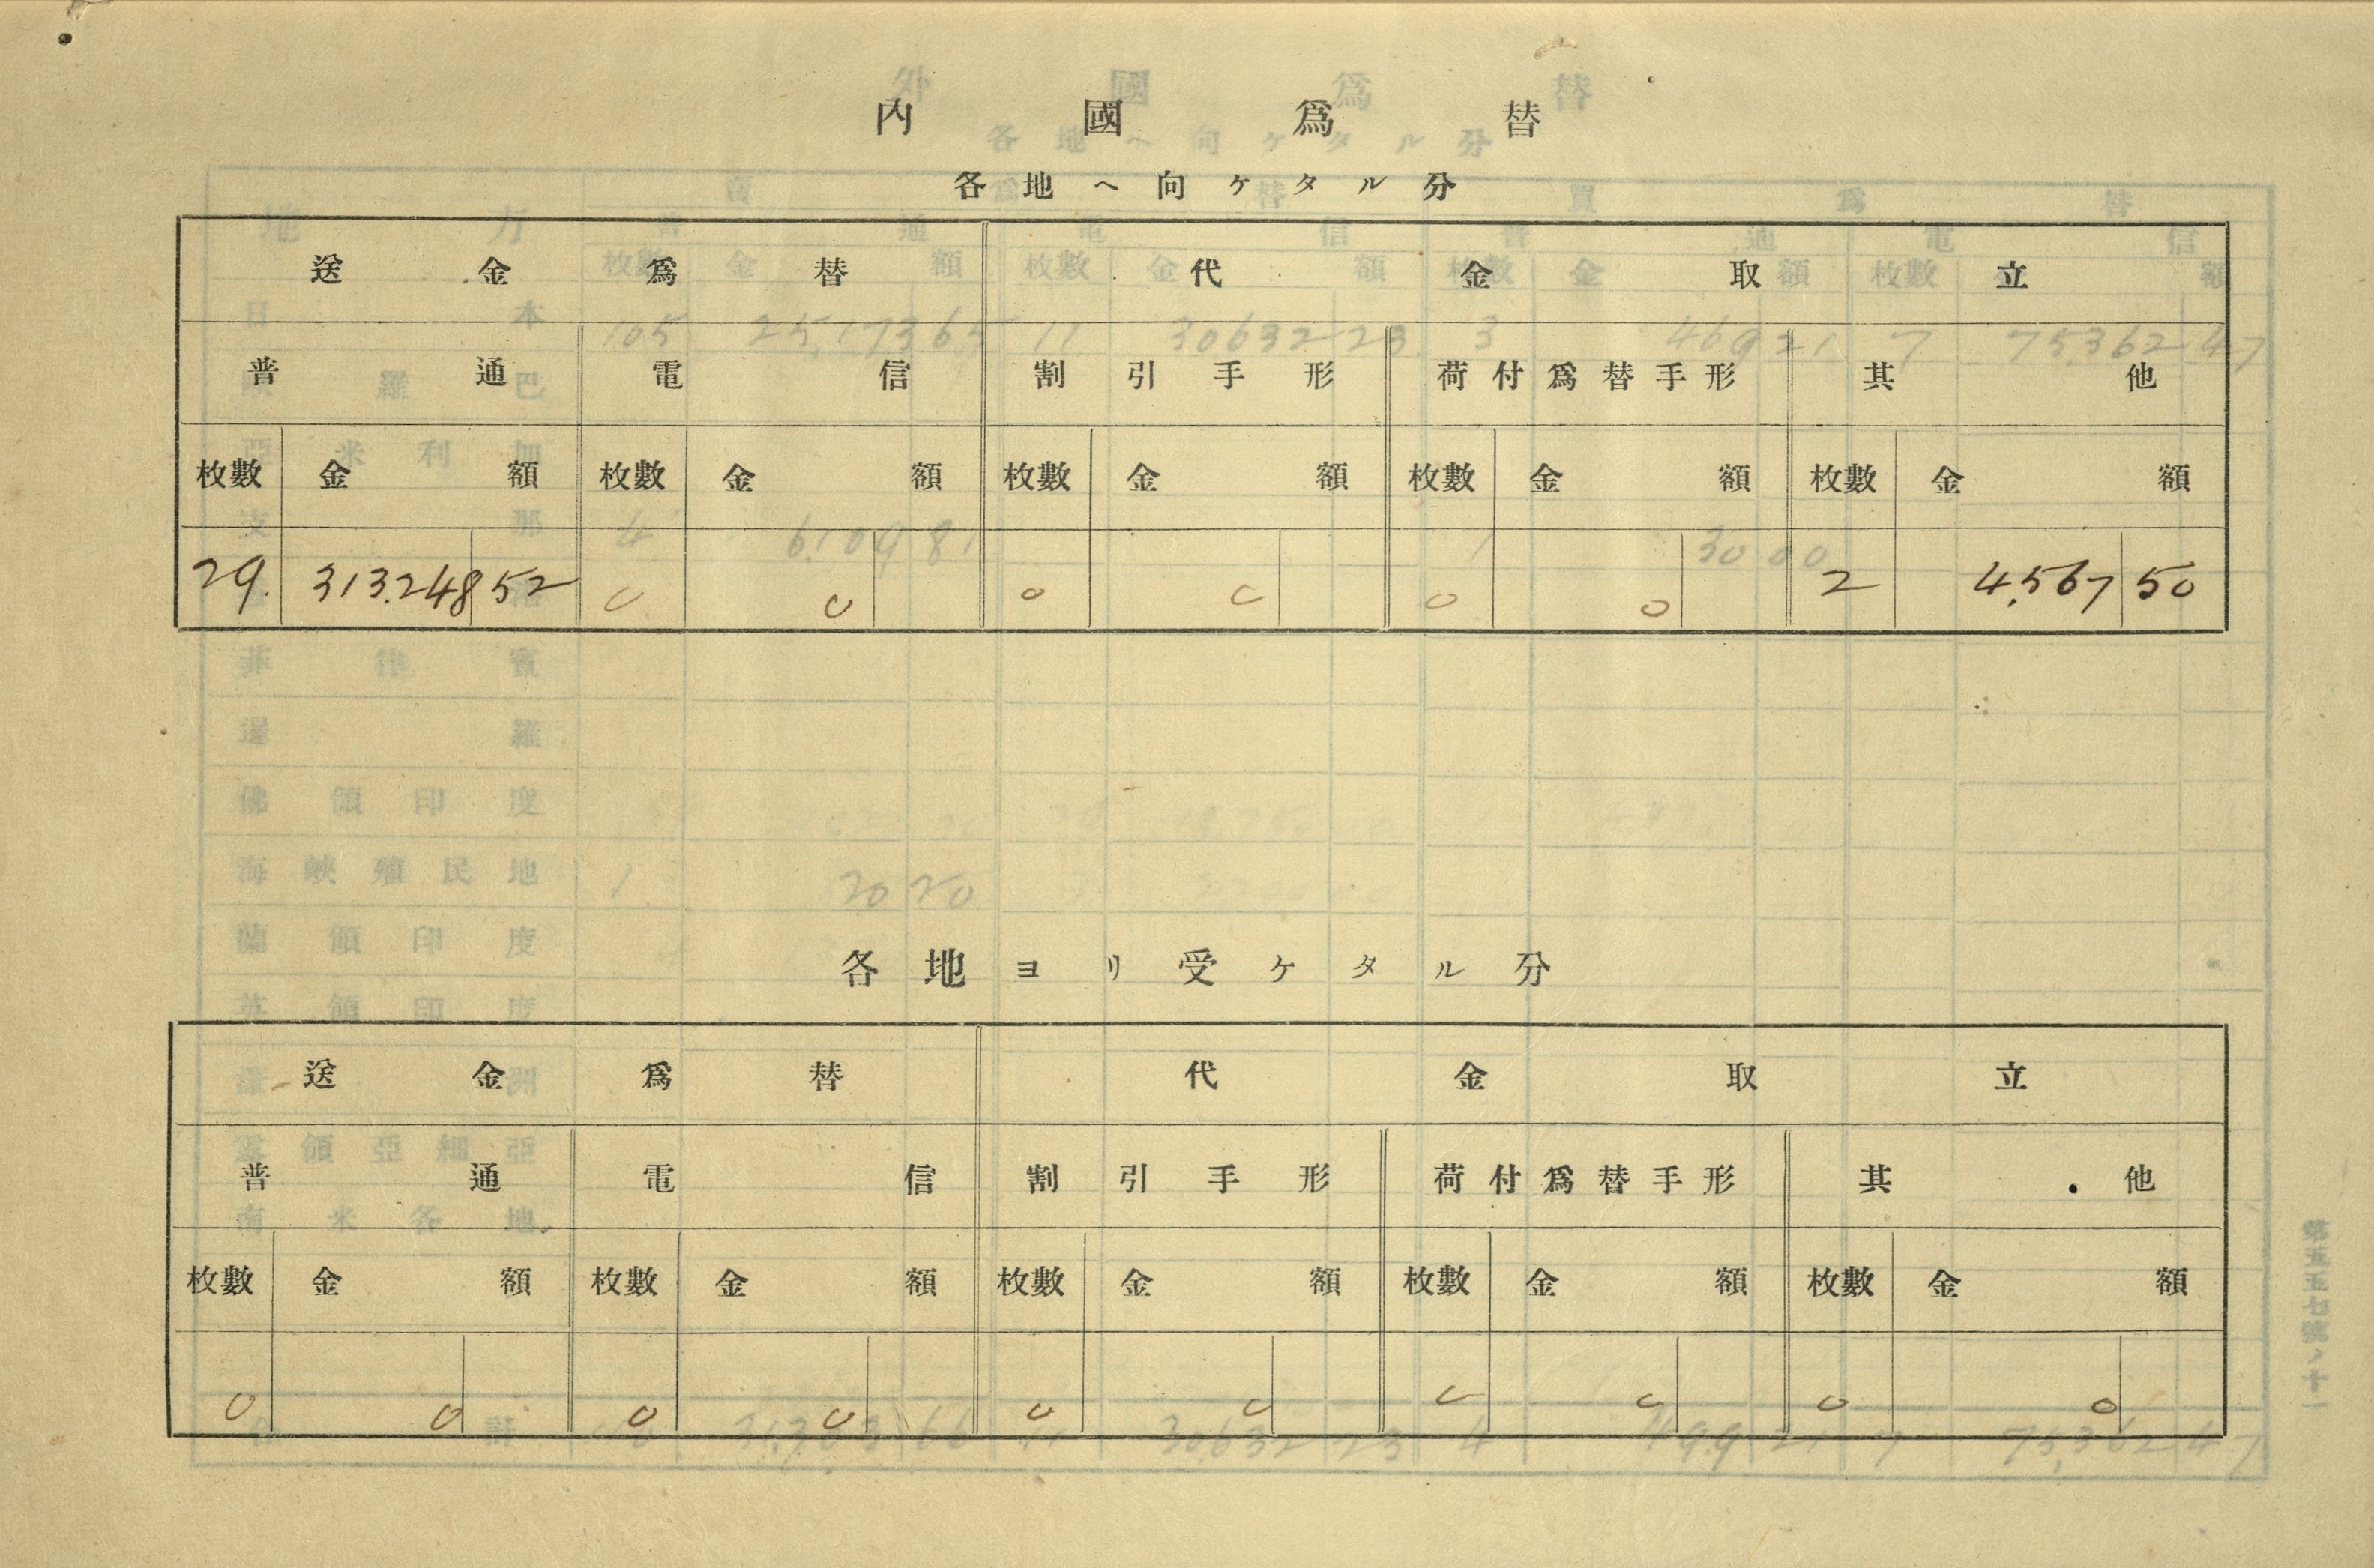 內國爲替
各地ヘ向ケタル分
送金爲替 代金取立
普通 電信 割引手形 荷付爲替手形 其他
枚數 金額 枚數 金額 枚數 金額 枚數 金額 枚數 金額
29. 313.248 52 0 0 0 0 0 0 2 4,567 50
各地ヨリ受ケタル分
送金爲替 代金取立
普通 電信 割引手形 荷付爲替手形 其他
枚數 金額 枚數 金額 枚數 金額 枚數 金額 枚數 金額
0 0 0 0 0 0 0 0 0 0